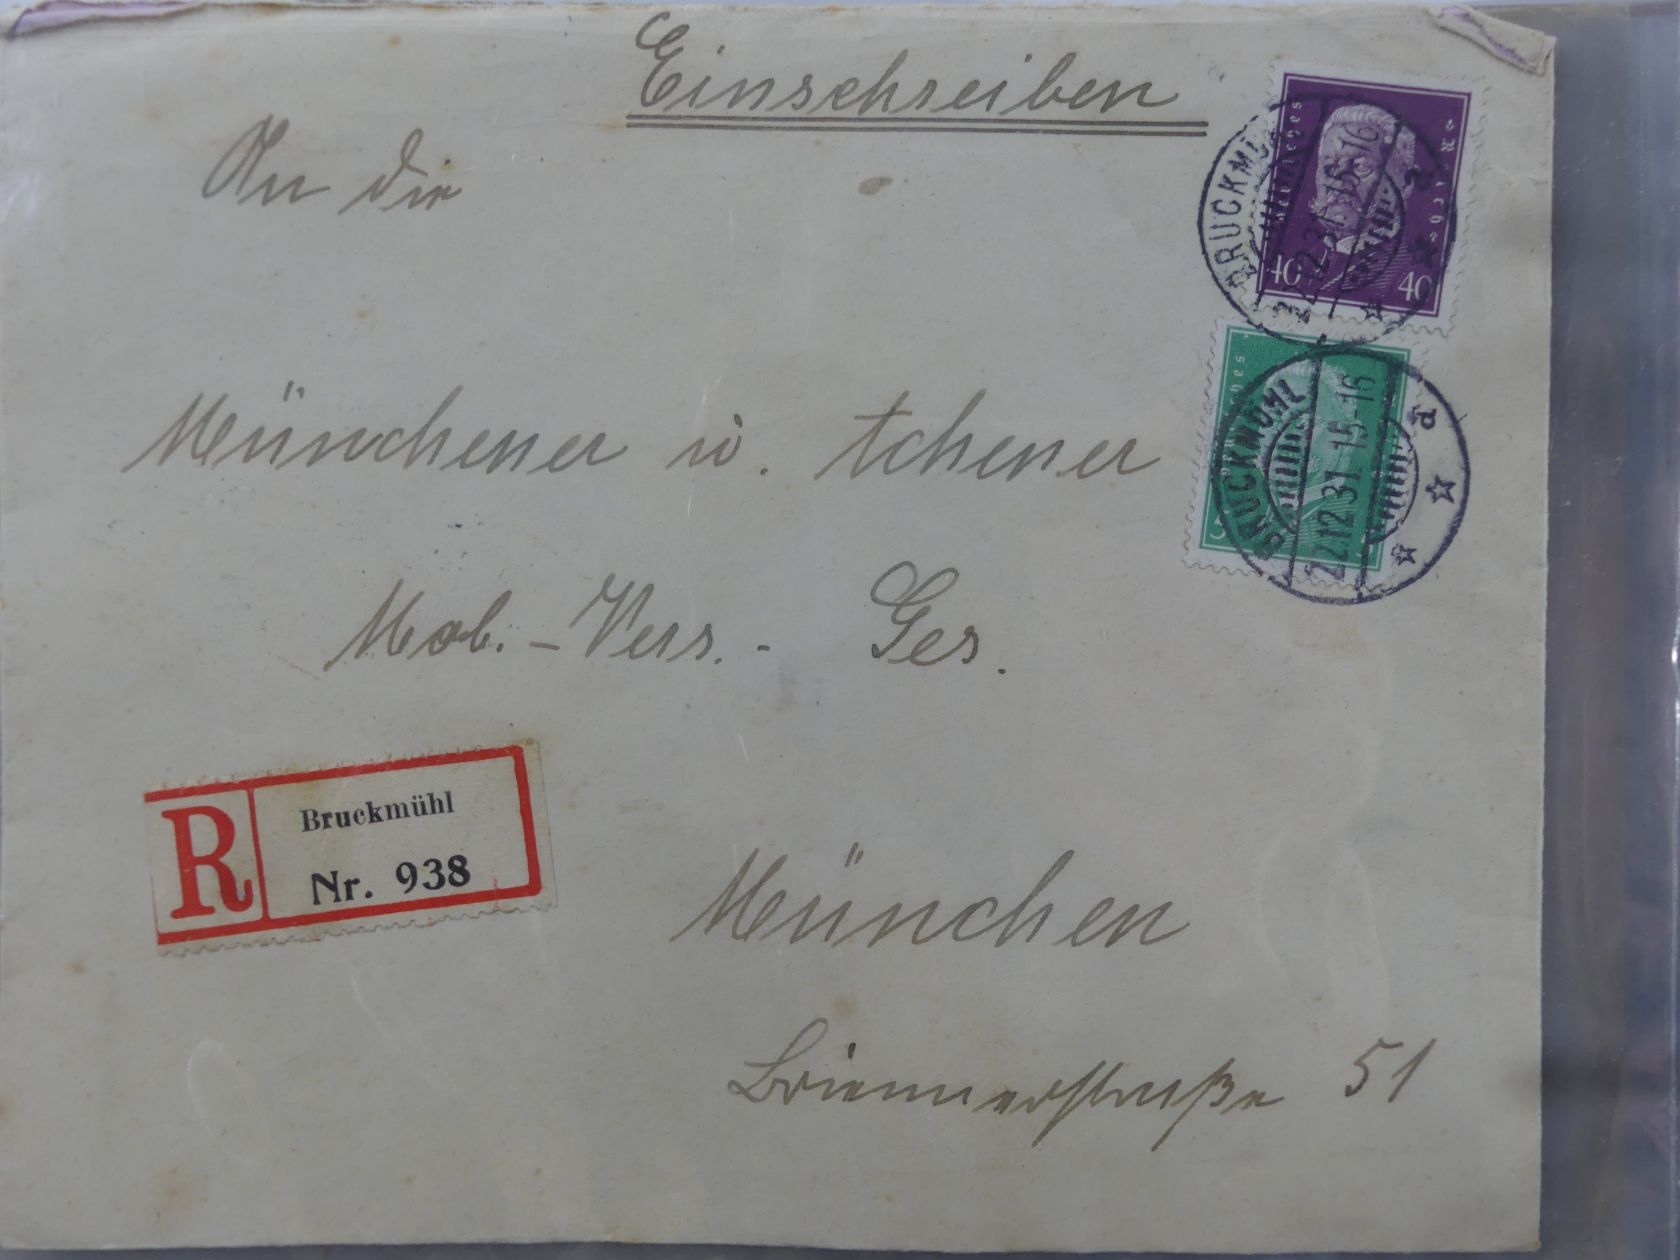 Einschreiben
An die
Münchener u. Achener
Mob.-Vers.- Ges.
München
Briennerstraße 51
R
Bruckmühl
Nr. 938
40 40
BRUCKMÜHL
22.12.31.15-16
a
5
BRUCKMÜHL
22.12.31.15-16
a